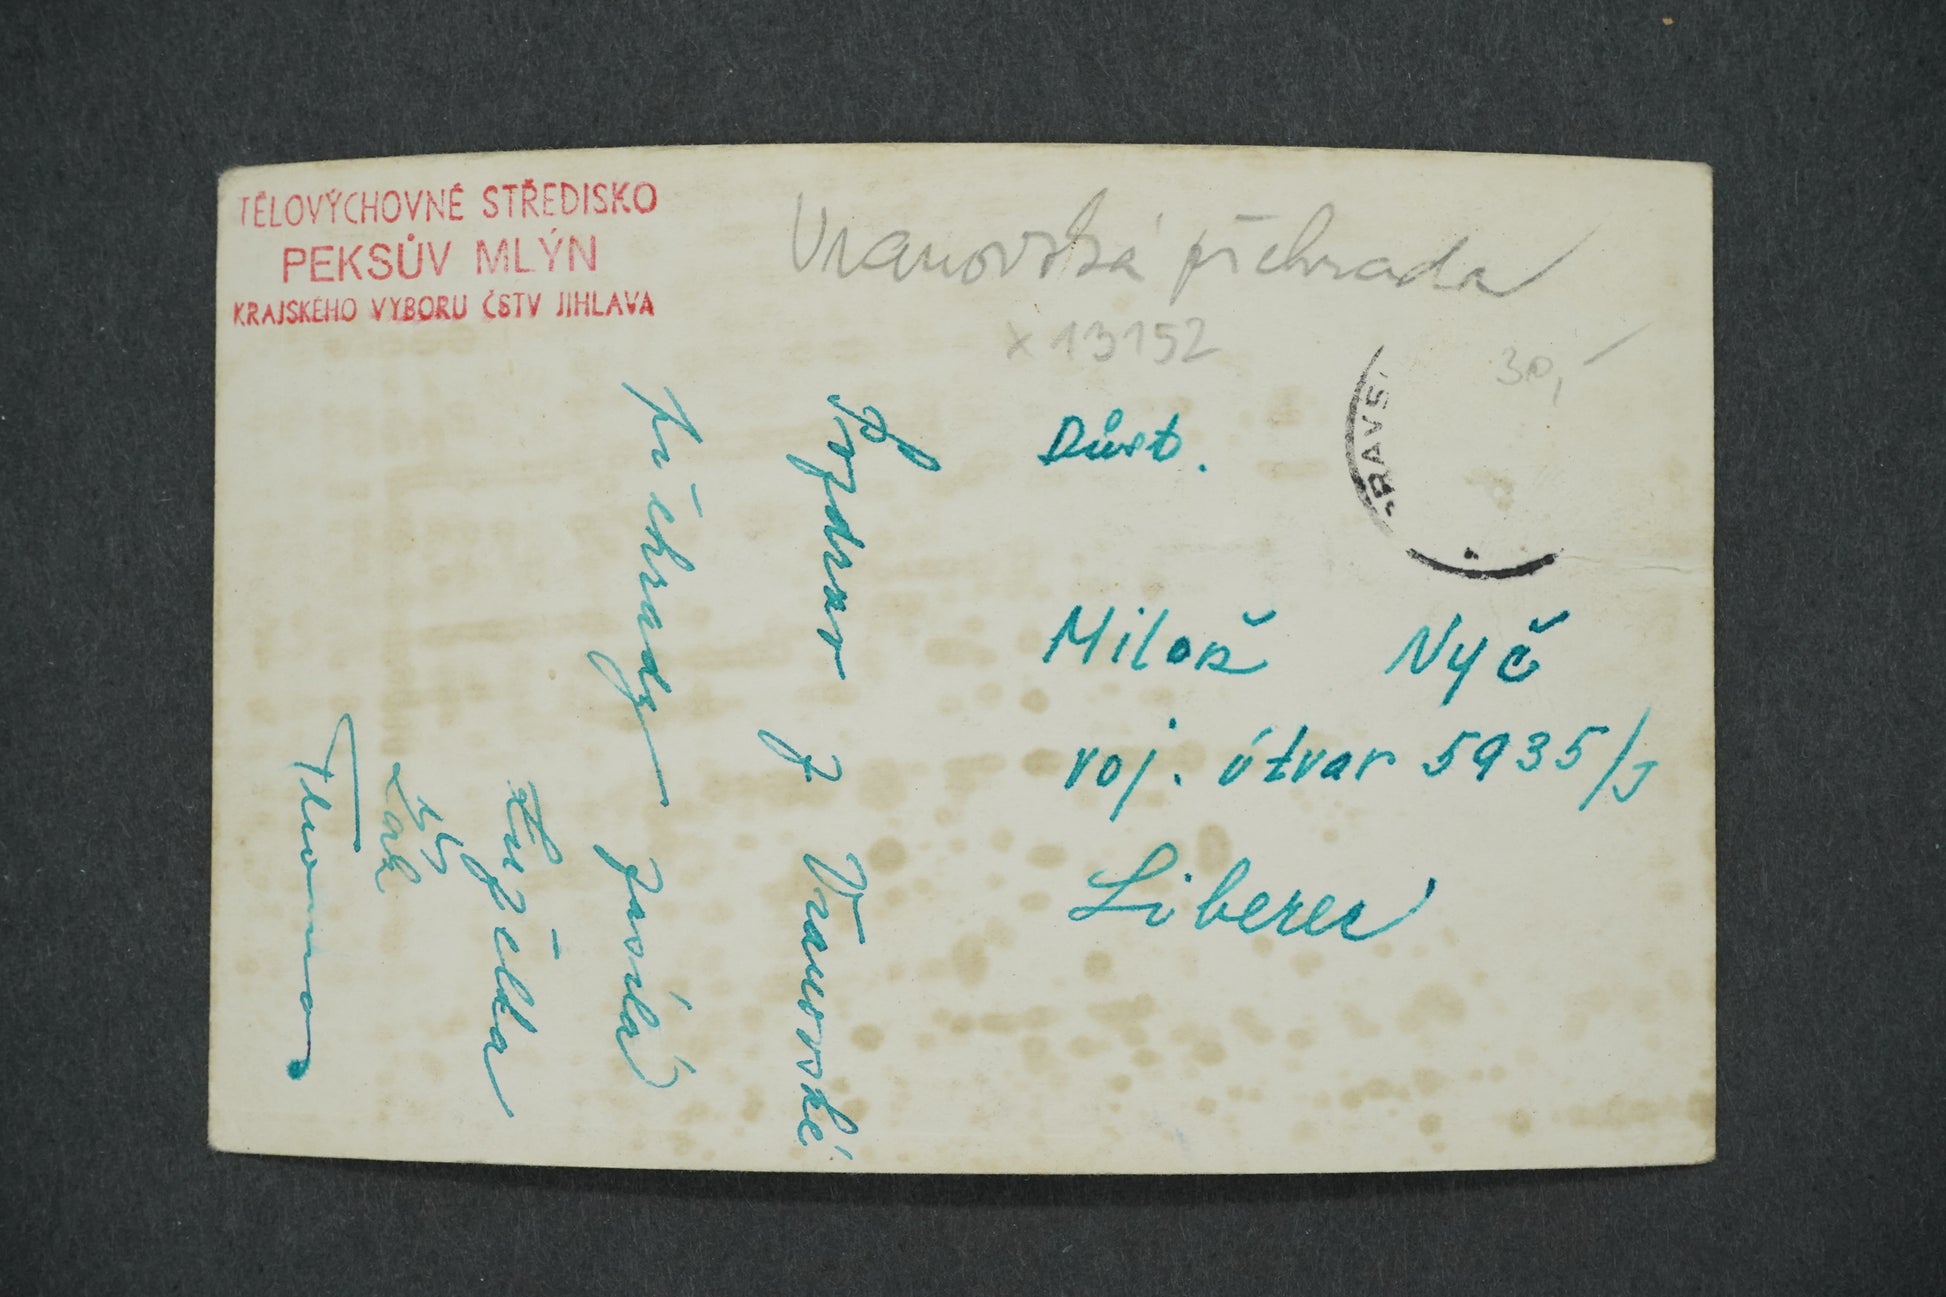 TĚLOVÝCHOVNÉ STŘEDISKO
PEKSŮV MLÝN
KRAJSKÉHO VÝBORU ČSTV JIHLAVA
Vranovská přehrada
x 13152
30,-
RAVS
Důst.
Miloš Nyč
voj. útvar 5935/J
Liberec
Pozdrav z Vranovské
přehrady zasílá